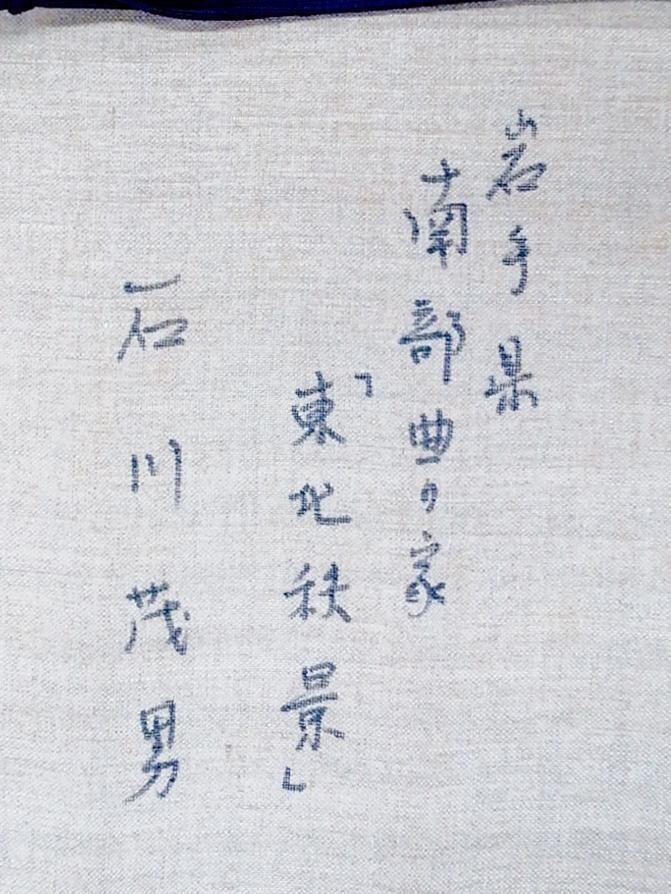 岩手県
南部曲り家
「東北秋景」
石川茂男